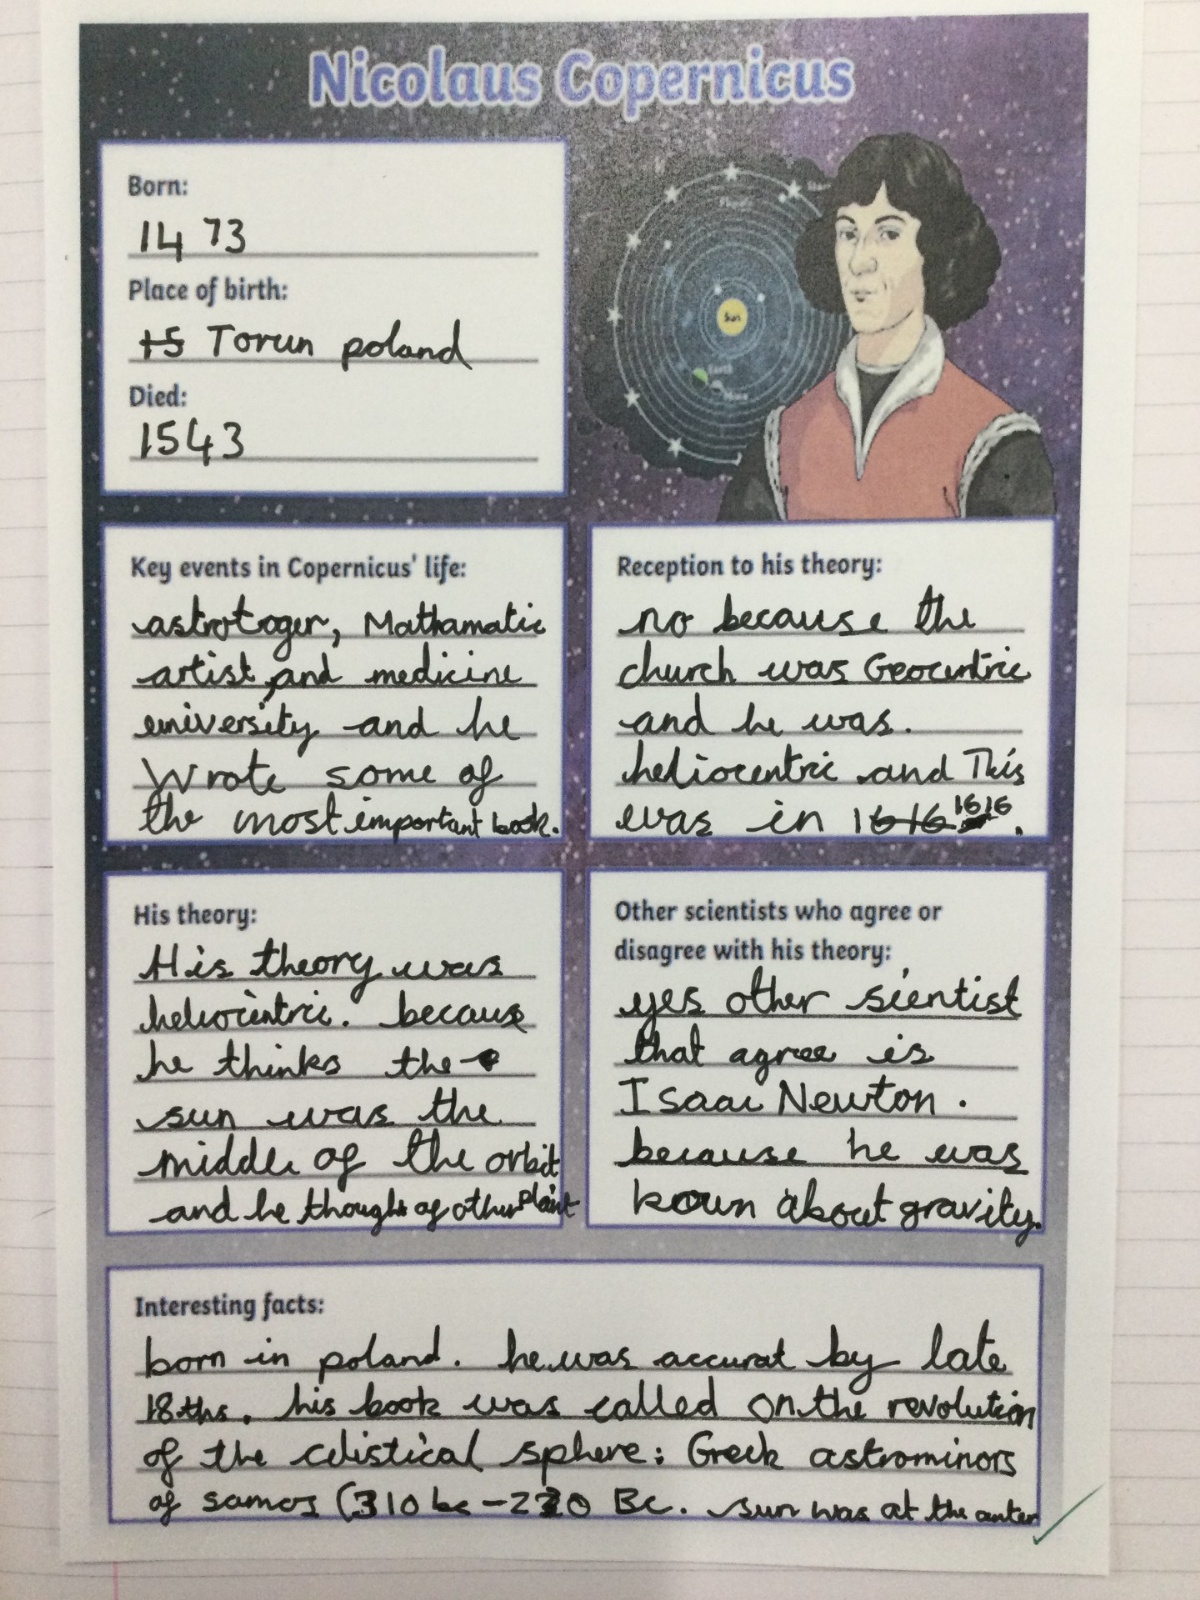 Nicolaus Copernicus
Born:
1473
Place of birth:
Torun poland
Died:
1543
Sun
Earth
Key events in Copernicus' life:
astrotoger, Mathamatic
artist, and medicine
university and he
Wrote some of
the most important book.
Reception to his theory:
no because the
church was Geocentric
and he was.
heliocentric and This
was in 1616 1616.
His theory:
His theory was
heliocentric. because
he thinks the
sun was the
middle of the orbit
and he thought of other
Other scientists who agree or
disagree with his theory:
yes other sientist
that agree is
Isaac Newton.
because he was
kown about gravity.
Interesting facts:
born in poland. he was accurat by late
18ths. his book was called on the revolution
of the celistical sphere: Greek astrominors
of samos (310 bc - 230 Bc. sun was at the center